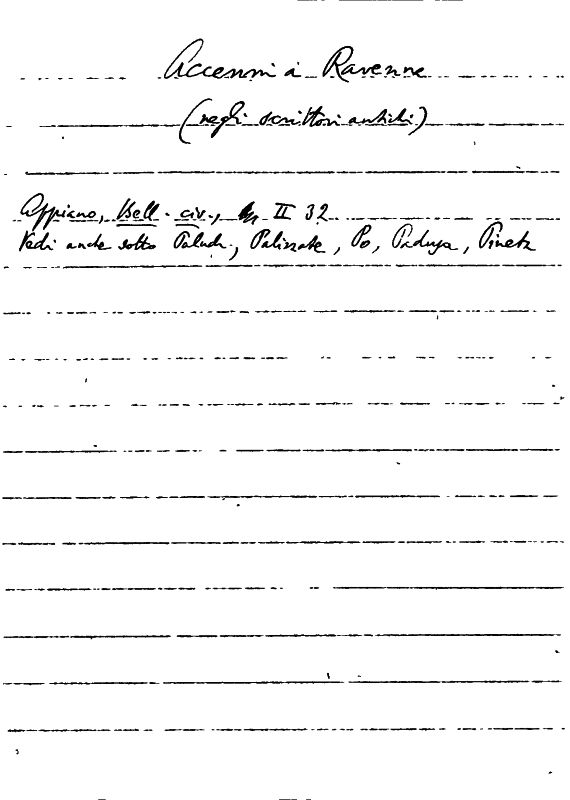 Accenni a Ravenna
(negli scrittori antichi)
Appiano, Bell. civ., II 32
Vedi anche sotto Palude, Palizzate, Po, Padusa, Pineta